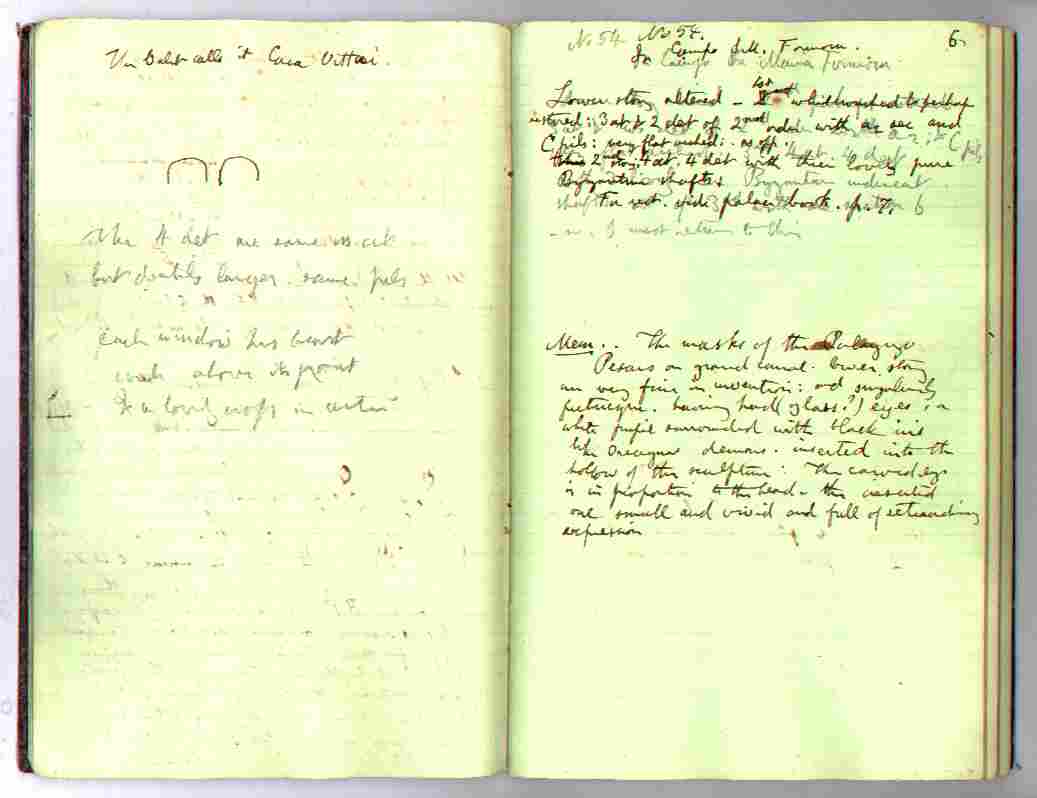 calls it Casa Vittari
The 4 det are same as at
but double larger. same pils
Each window has beast
above its point
& a lovely cross in
No 54 No 54.
6
In Campo S.M. Formosa.
In Campo Sa Maria Formosa
Lower story altered - 1st which perhaps
restored: 3 at & 2 det of 2nd order with as sec and
C pils: very flat arched: no opp.
2nd story. 4 at. 4 det with their lovely pure
Byzantine shafts Byzantine
For rest. vide palace book. p. 7.
I must return to this
Mem.. The masks of the Palazzo
Pesaro on grand canal. lower story
are very fine in invention: and singularly
picturesque. having hard (glass?) eyes, a
white pupil surrounded with black iris
like Orcagna demons. inserted into the
hollow of the sculpture: The carved eye
is in proportion to the head - the inserted
one small and vivid and full of extraordinary
expression